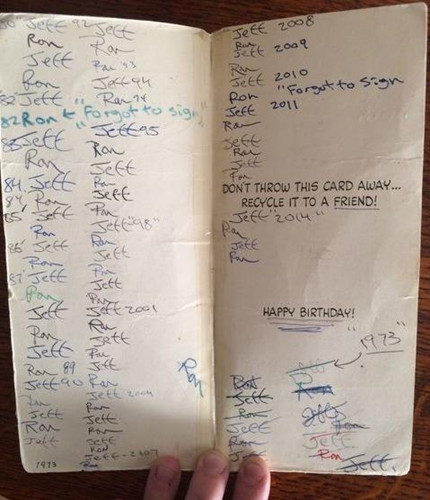 Jeff 92
Ron
Jeff
Ron
82 Jeff
82 Ron "Forgot to sign"
83 Jeff
Ron
84 Jeff
84 Ron
85 Jeff
Ron
86 Jeff
Ron
87 Jeff
Ron
Jeff
Ron
Jeff
Ron 89
Jeff 90
Jeff
Ron
Jeff
1973
Jeff
Ron
Ron 93
Jeff 94
Ron 94
Jeff 95
Ron
Jeff
Ron
Jeff
Ron
Jeff "98"
Ron
Jeff
Ron
Jeff
Ron
Jeff 2001
Ron
Jeff
Ron
Jeff
Ron
Jeff 2004
Ron
Jeff
Ron
Jeff
Ron
Jeff - 2007
Ron
Ron
Jeff 2008
Ron 2009
Jeff
Ron
Jeff 2010
Ron "Forgot to sign
Jeff 2011
Ron
Jeff
Ron
Jeff
Ron
DON'T THROW THIS CARD AWAY...
RECYCLE IT TO A FRIEND!
Jeff "2014"
Ron
Jeff
Ron
HAPPY BIRTHDAY!
"1973"
Jeff
Ron
Jeff
Ron
Jeff
Ron
Jeff
Ron
Jeff